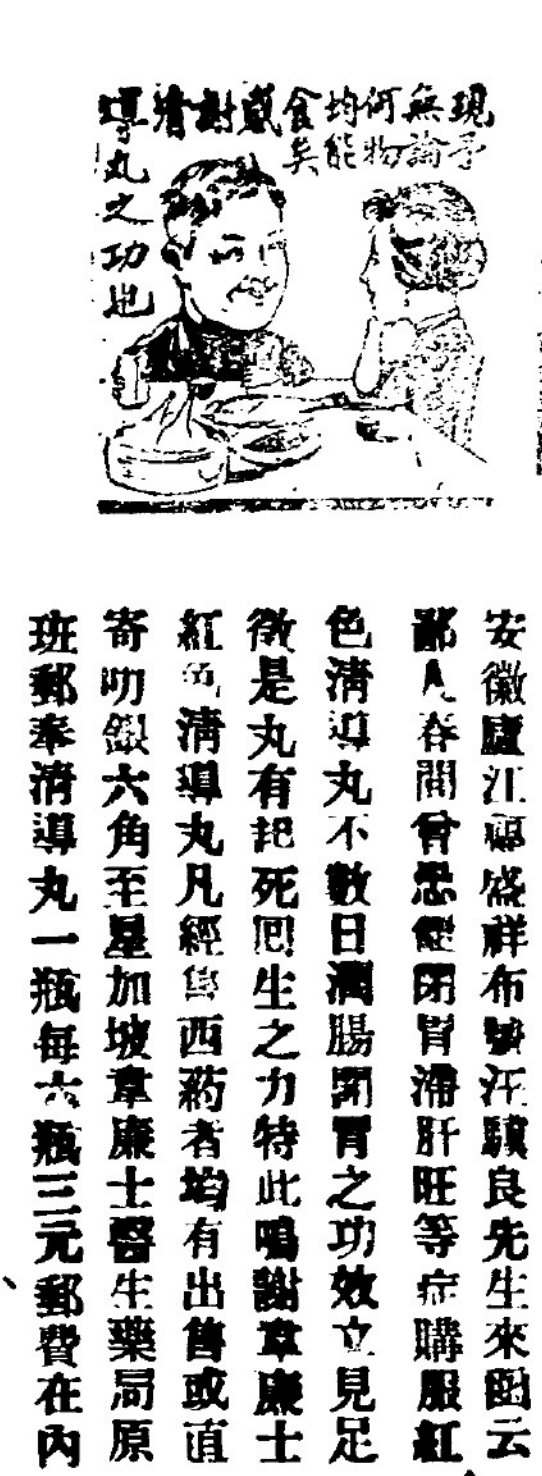 現予
無論
何物
均能
食矣
感
謝
清
導丸之功也
安徽廬江福盛祥布號汪驥良先生來函云
鄙人春間曾患便閉胃滯肝旺等症購服紅
色清導丸不數日潤腸開胃之功效立見足
徵是丸有起死回生之力特此鳴謝韋廉士
紅色清導丸凡經售西药者均有出售或直
寄叻銀六角至星加坡韋廉士醫生藥局原
班郵奉清導丸一瓶每六瓶三元郵費在內